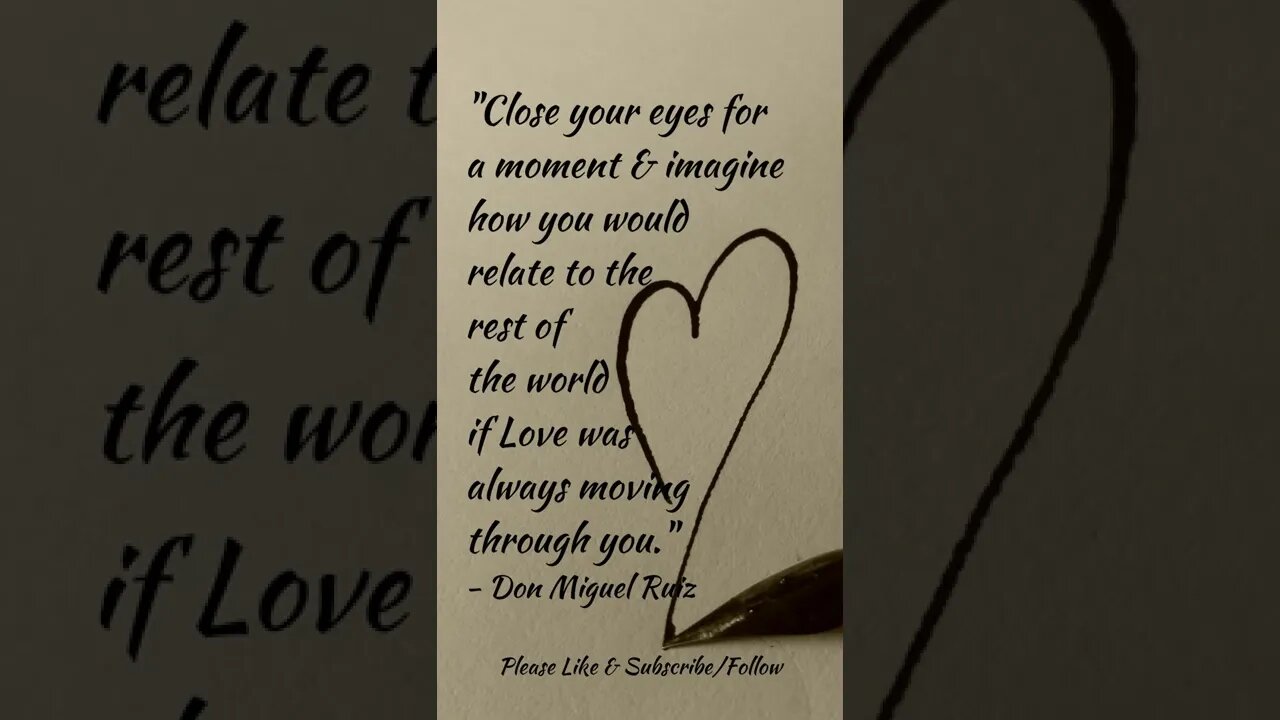 "Close your eyes for
a moment & imagine
how you would
relate to the
rest of
the world
if Love was
always moving
through you."
- Don Miguel Ruiz
Please Like & Subscribe/Follow
relate t
rest of
the wor
if Love